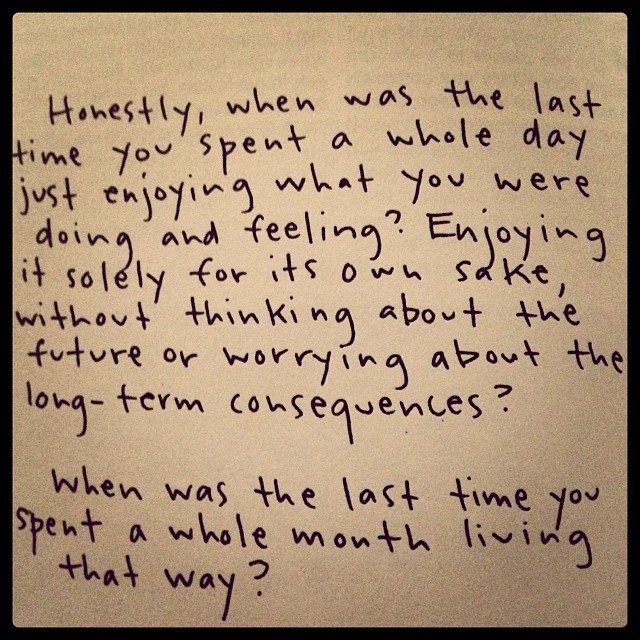 Honestly, when was the last
time you spent a whole day
just enjoying what you were
doing and feeling? Enjoying
it solely for its own sake,
without thinking about the
future or worrying about the
long-term consequences?
When was the last time you
spent a whole month living
that way?